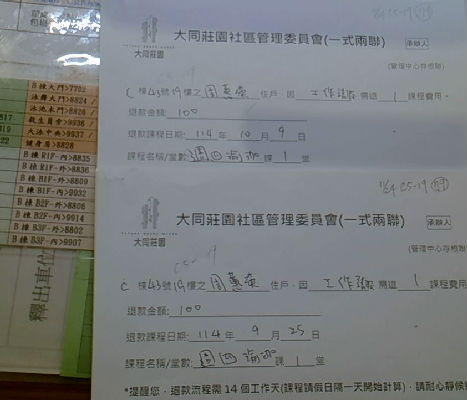 B棟大門>7702
B棟R1F-內>8835
B棟R1F-外>8836
B棟B1F-外>8809
B棟B1F-內>9932
B棟B2F-外>8806
B棟B2F-內>9914
B棟B3F-外>8802
B棟B3F-內>9907
健身房>8828
釋出車位
大同莊園
大同莊園社區管理委員會(一式兩聯)
承辦人
(管理中心存根聯)
C 棟 43號 19樓之 周蕙 住戶,因 工作 需退 1 課程費用。
退款金額: 100
退款課程日期: 114 年 10 月 9 日
課程名稱/堂數: 週四瑜珈 課 1 堂
11/24 C5-19
大同莊園
大同莊園社區管理委員會(一式兩聯)
承辦人
(管理中心存根聯
C5-19
C 棟 43號 19樓之 周蕙 住戶,因 工作 需退 1 課程費用
退款金額: 100
退款課程日期: 114 年 9 月 25 日
課程名稱/堂數: 週四瑜珈 課 1 堂
*提醒您,退款流程需14個工作天(課程請假日隔一天開始計算),請耐心靜候